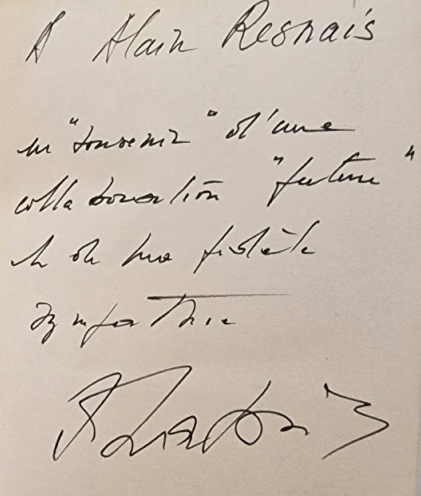 A Alain Resnais
en "souvenir" d'une
collaboration "future"
et de ma fidèle
sympathie